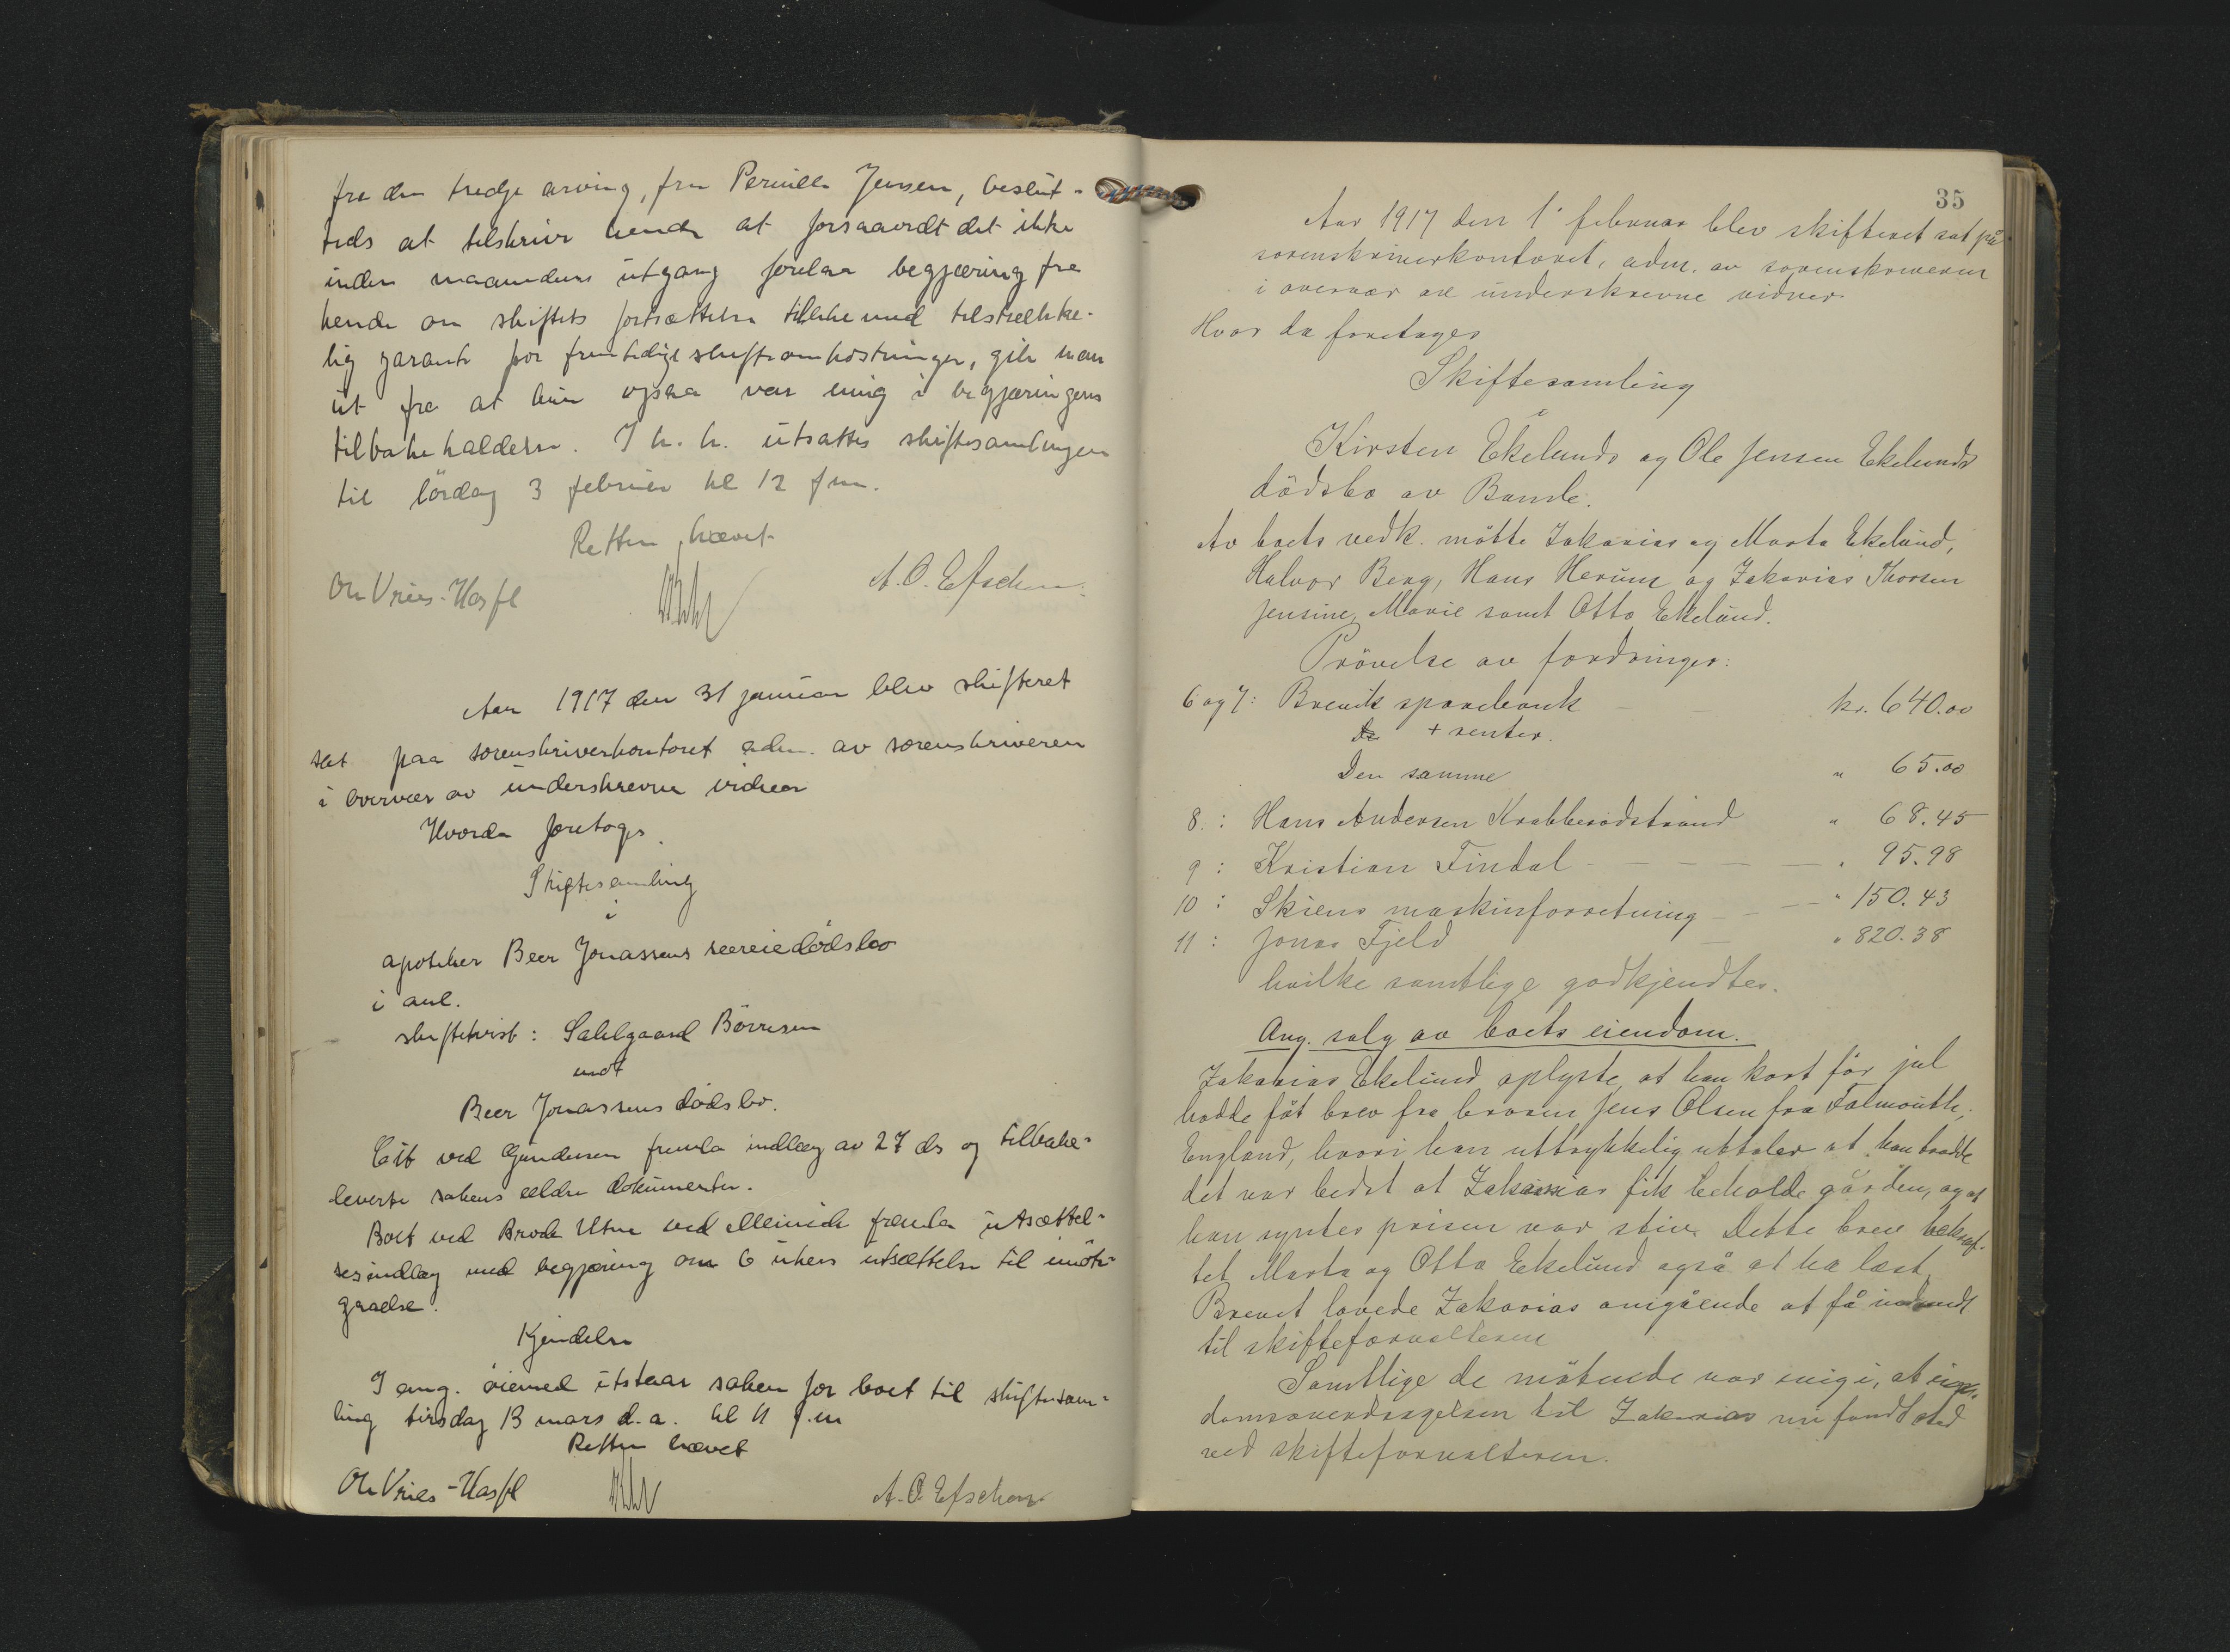 fra den tredje arving, fru Pernille Jensen, beslut-
teds at tilskrive hende at forsaavidt det ikke
inden maanedens utgang forelaa begjæring fra
hende om skiftets fortsættelse tillike med tilstrække-
lig garanti for fremtidige skifteomkostninger, gik man
ut fra at hun ogsaa var enig i begjæringens
tilbakekaldelse. I h. h. utsattes skiftesamlingen
til lördag 3 februar kl 12 fm.
Retten hævet
A. O. Efschen
Aar 1917 den 31 januar blev skifteret
sat paa sorenskriverkontoret adm. av sorenskriveren
i overvær av underskrevne vidner
Hvorda foretoges
Skiftesamling
i
apoteker Beer Jonassens særeiedödsbo
i anl.
skiftetvist: Sahlgaard Börresen
mot
Beer Jonassens dödsbo.
Cit ved Gundersen fremla indlæg av 27 ds og tilbake-
leverte sakens ældre dokumenter.
Boet ved Brode Utne ved fremla utsættel-
sesindlæg med begjæring om 6 ukers utsættelse til imöte-
gaaelse.
Kjendelse
I ang. öiemed utstaar saken for boet til skiftesam-
ling tirsdag 13 mars d.a. kl 11 f.m
Retten hævet
A. O. Efschen
35
Aar 1917 den 1' februar blev skifteret sat på
sorenskriverkontoret, adm. av sorenskriveren
i overvær av underskrevne vidner.
Hvor da foretages
Skiftesamling
i
Kirsten Ekelunds og Ole Jensen Ekelunds
dödsbo av Bamle.
Av boets vedk. mötte Zakarias og Marta Ekelund,
Halvor Berg, Hans Herum og Zakarias Thorsen
Jensine, Marie samt Otto Ekelund.
Prövelse av fordringer:
6 og 7: Brevik sparebank kr. 640.00
Do + renter.
Den samme " 65.00
8.: Hans Andersen Krabberödstrand " 68.45
9: Kristian Findal " 95.98
10: Skiens maskinforretning " 150.43
11: Jonas Fjeld " 820.38
hvilke samtlige godkjendtes.
Ang. salg av boets eiendom.
Zakarias Ekelund oplyste, at han kort för jul
hadde fåt brev fra broren Jens Olsen fra Falmouth,
England, hvori han uttrykkelig uttaler at han trodde
det var bedst at Zakarias fik beholde gården, og at
han syntes prisen var stiv. Dette brev bekræf-
tet Marta og Otto Ekelund også at ha læst.
Brevet lovede Zakarias omgående at få indsendt
til skifteforvalteren
Samtlige de mötende var enig i, at eien-
domsoverdragelsen til Zakarias nu fandt sted
ved skifteforvalteren.